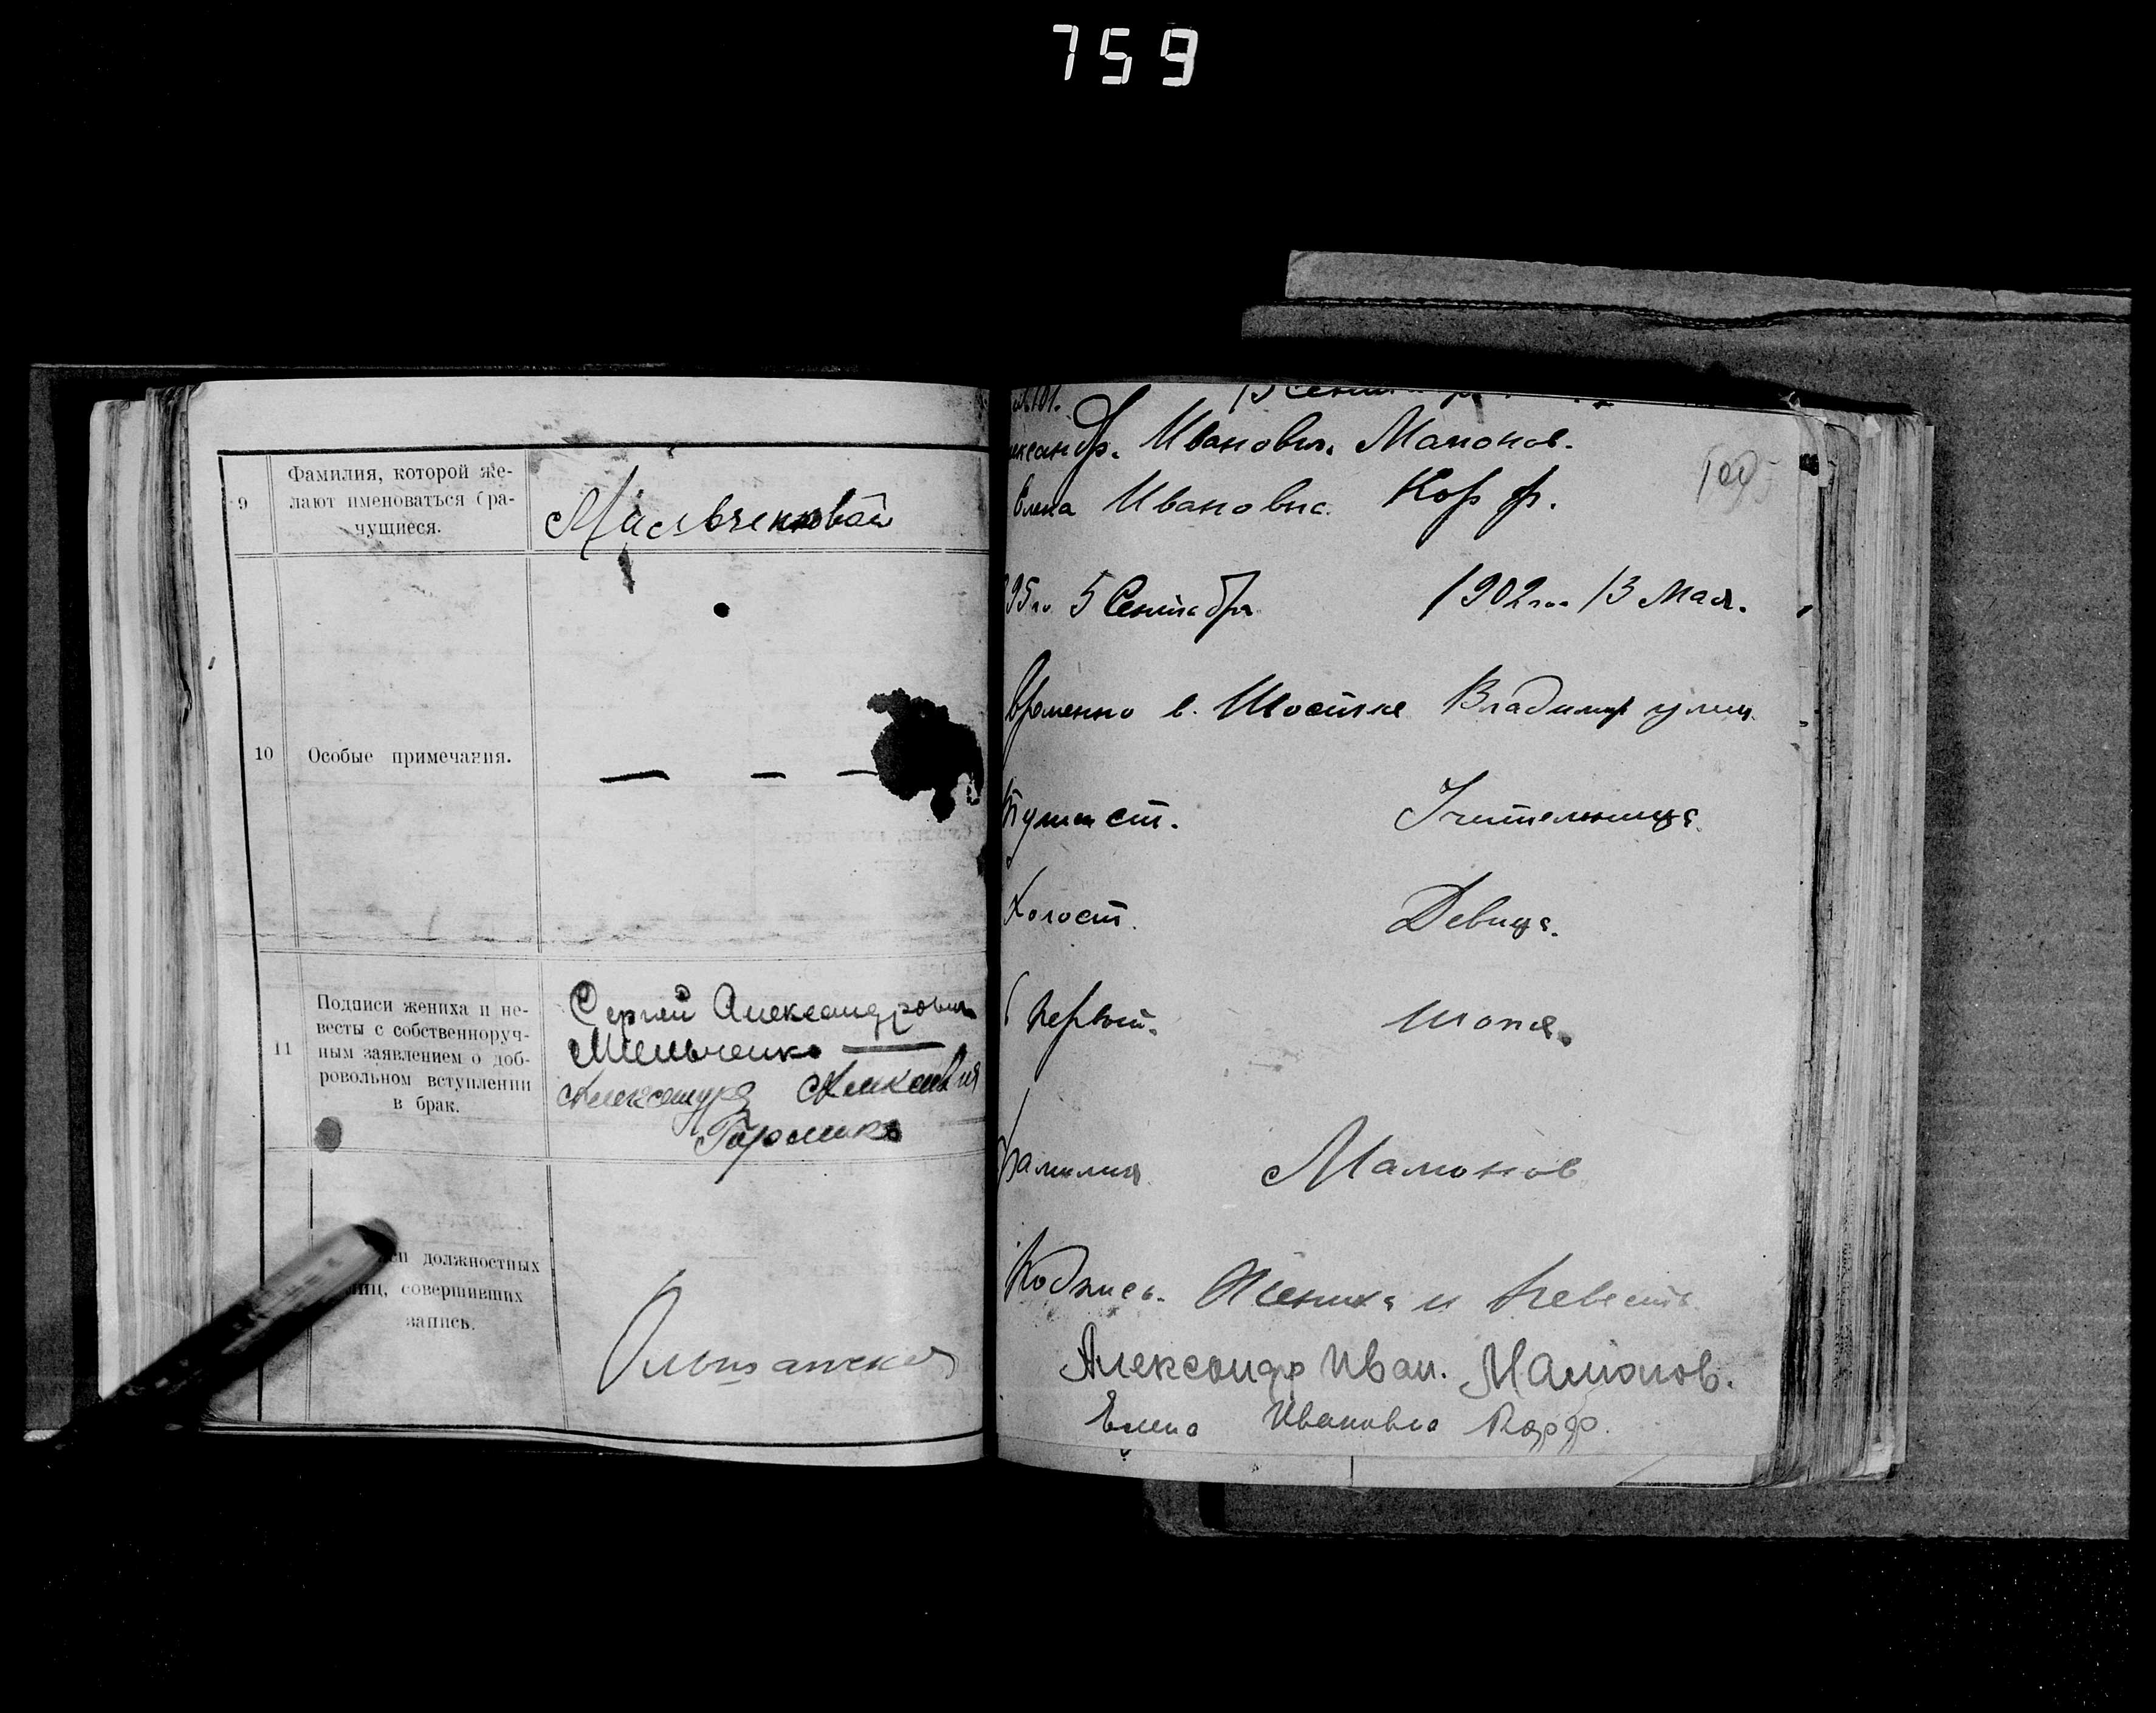 759
9
Фамилия, которой же-
лают именоваться бра-
чущиеся.
10
Особые примечания.
— — —
11
Подписи жениха и не-
весты с собственноруч-
ным заявлением о доб-
ровольном вступлении
в брак.
Сергей Александрович
Мильченко
Александра
должностных
совершивших
запись.
Иванович. Мамонов.
Елена Ивановна. Корф.
5 Сентября 1902 го. 13 Мая.
Временно в. Шостке Владимир улиц.
Учительница.
Холост. Девица.
первый. тоже.
Фамилия Мамонов
Подпись. Жениха и Невесты.
Александр Иван. Мамонов.
Елена Ивановна Корф.